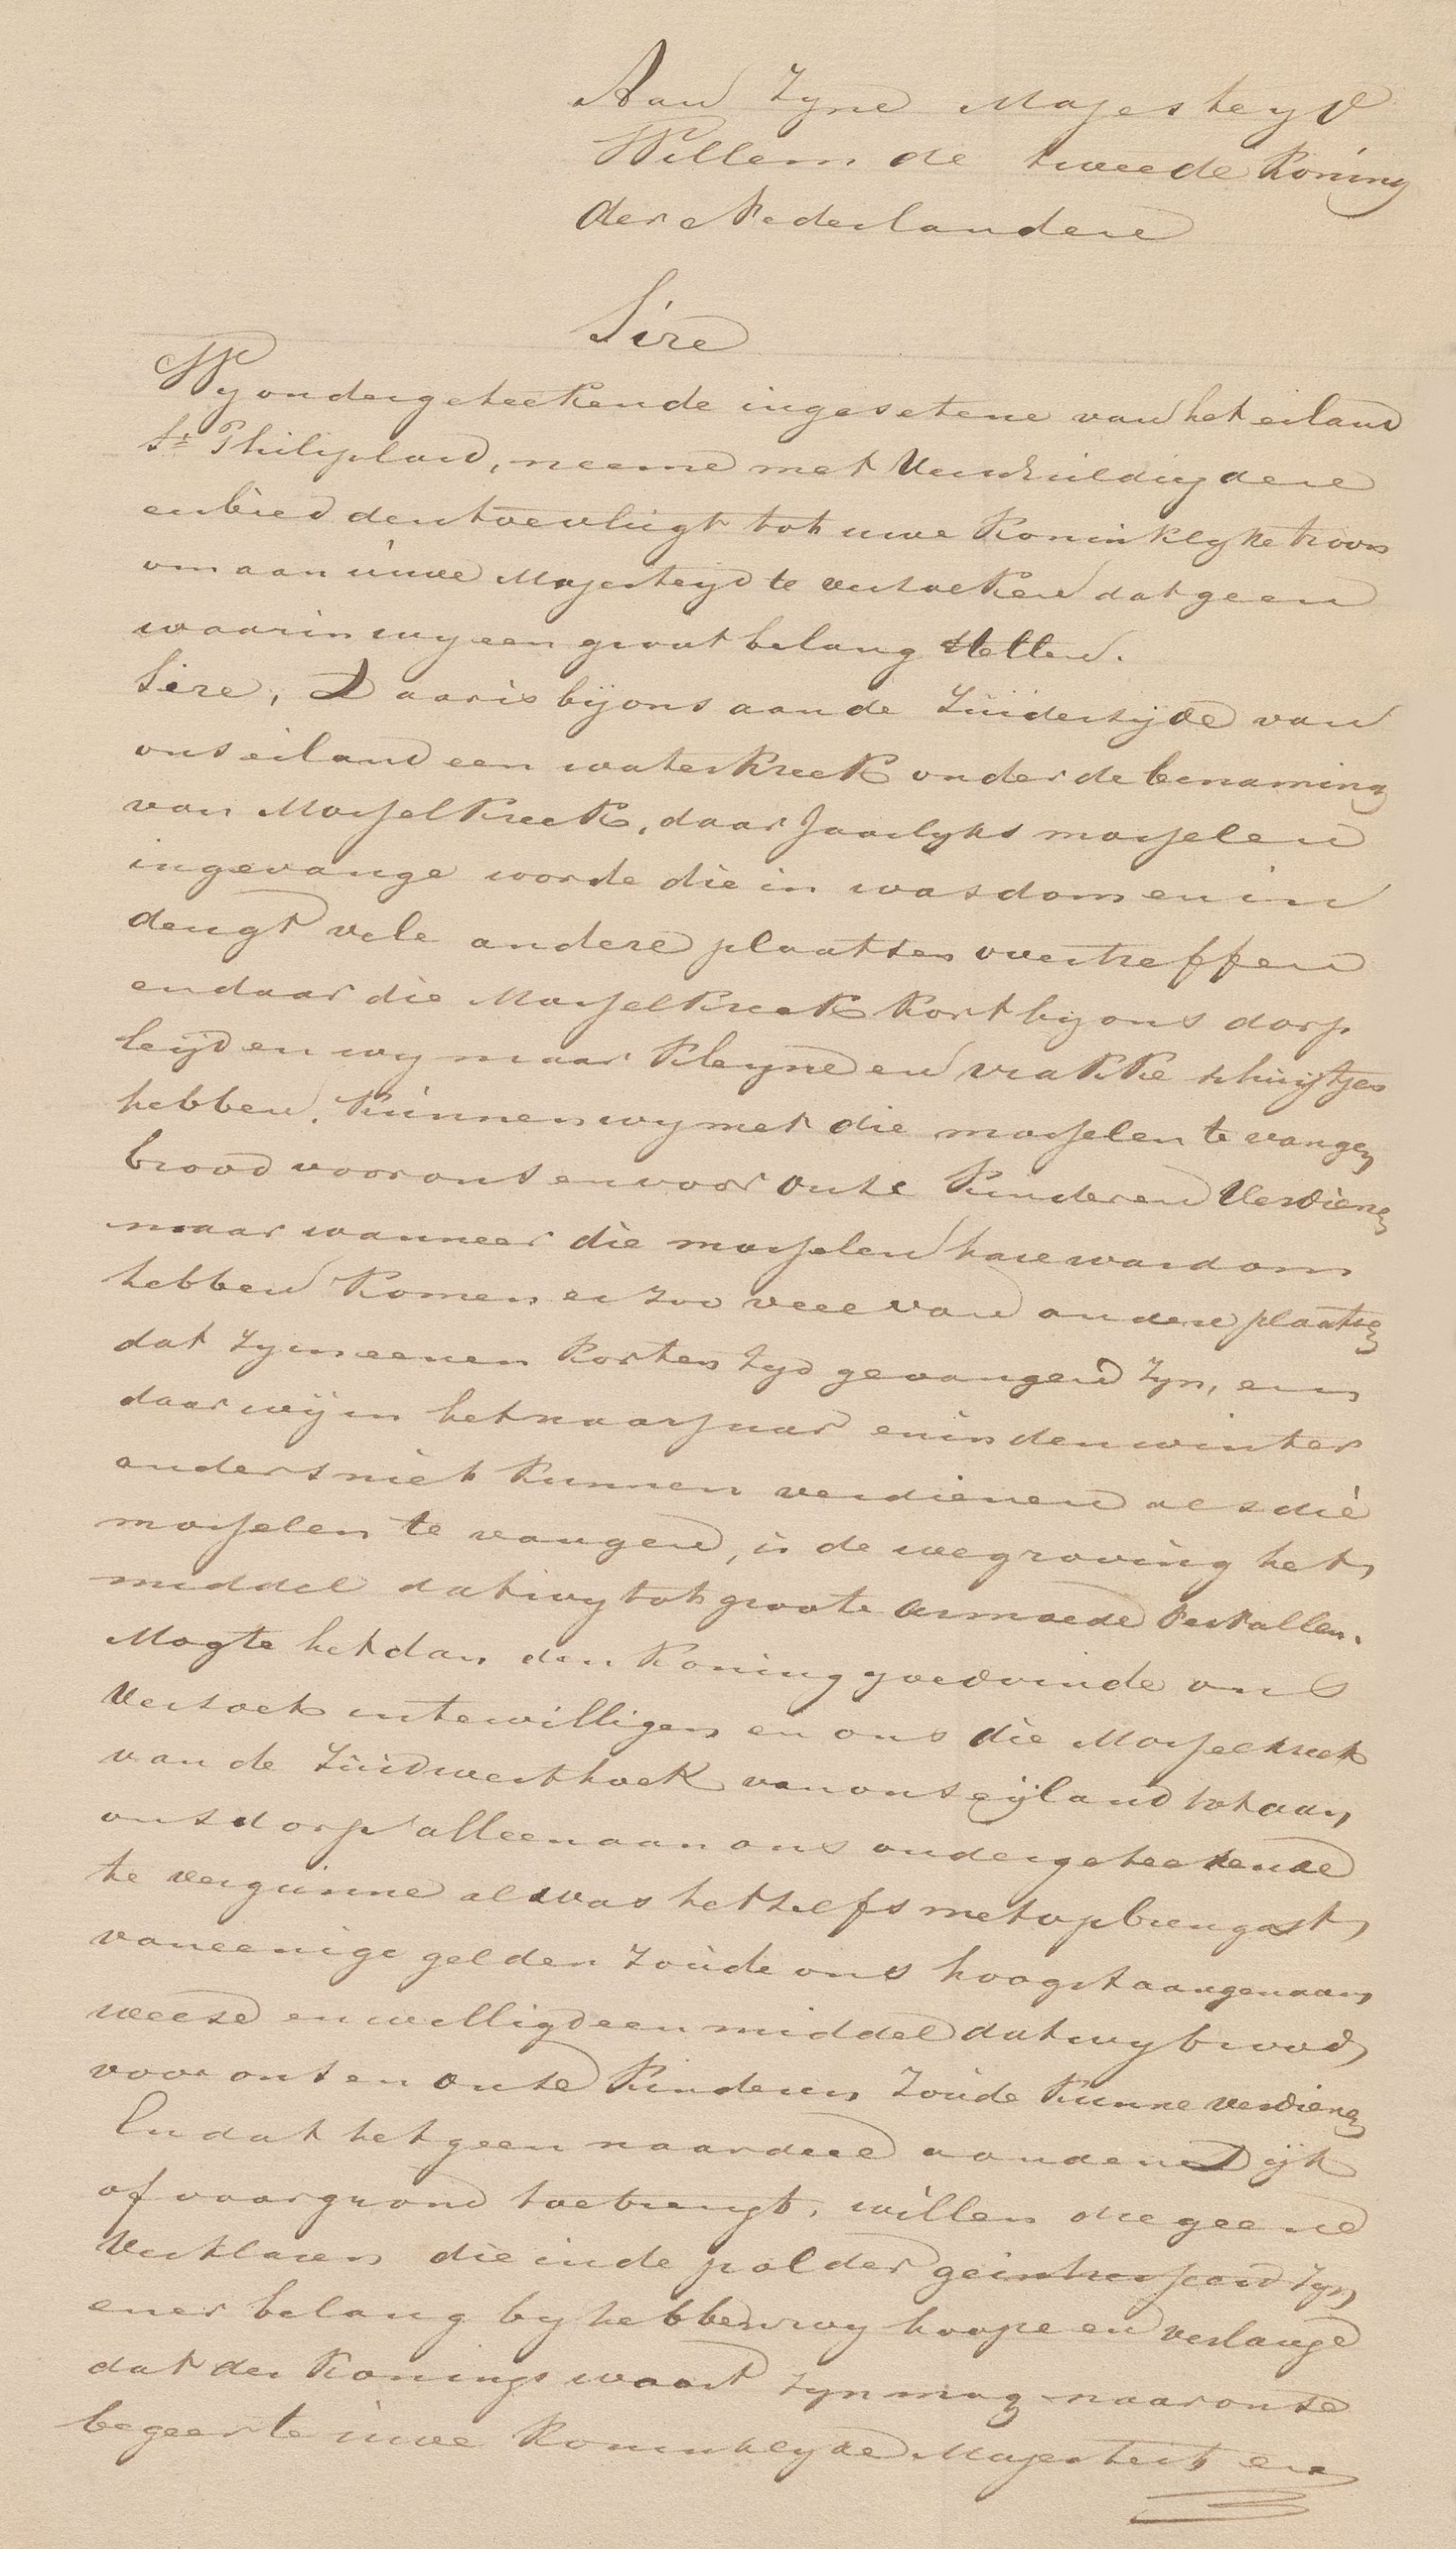 Aan Zyne Majesteyd
Willem de tweede Koning
der Nederlanden
Sire
Wy ondergeteekende ingesetene van het eiland
St Philipland, neeme met Verschuldigdene
eerbied den toevlugt tot uwe Koninklyke troon
om aan uwe Majesteyd te versoeken datgeen
waarin wy een groot belang Stellen.
Sire, Daar is bij ons aan de Zuidersijde van
ons eiland een waterkreek onder de benaming
van Mosselkreek, daar Jaarlyks mosselen
in gevange worde die in wasdom en in
deugt vele andere plaatsen overtreffen
en daar die Mosselkreek kort by ons dorp
leijd en wy maar kleyne en vrakke schuijtjes
hebben, kunnen wy met die mosselen te vangen
brood voor ons en voor onse kinderen Verdienen
maar wanneer die mosselen hare wasdom
hebben komen er zoo veele van andere plaatsen
dat zy in eenen korten tyd gevangen zyn, en
daar wij in het naarjaar en in den winter
anders niet kunnen verdienen als die
mosselen te vangen, is de wegroving het
middel dat wy tot groote armoede vervallen.
Mogte het dan den Koning goedvinde ons
Versoek in te willigen en ons die Mosselkreek
van de Zuidwesthoek van ons eijland tot aan
ons dorp alleen aan ons ondergeteekende
te vergunne al was het selfs met opbrengst
van eenige gelden zoude ons hoogst aangenaam
weese en wellig een middel dat wy brood
voor ons en onse kinderen zoude kunne verdienen
En dat het geen naardeel aan den Dijk
of voorgrond toebrengt, willen diegeene
Verklaren die in de polder geintresseerd zyn
en er belang by hebben wy hoope en verlange
dat des Konings woort zyn mag naar onse
begeerte uwe Koninklyke Majesteit en